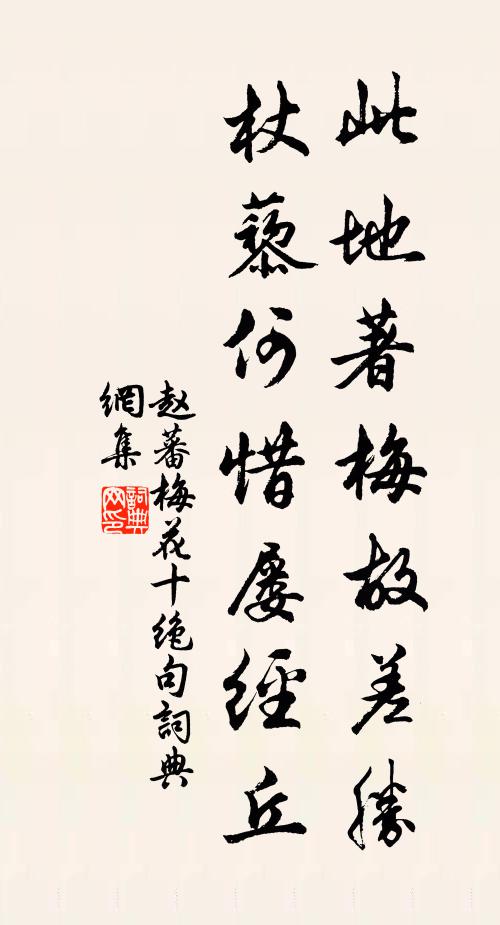 此地著梅故差勝
杖藜何惜屡經丘
赵蕃梅花十绝句詞典
網集
詞典
网印